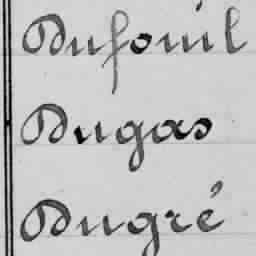 Dufouil
Dugas
Dugré